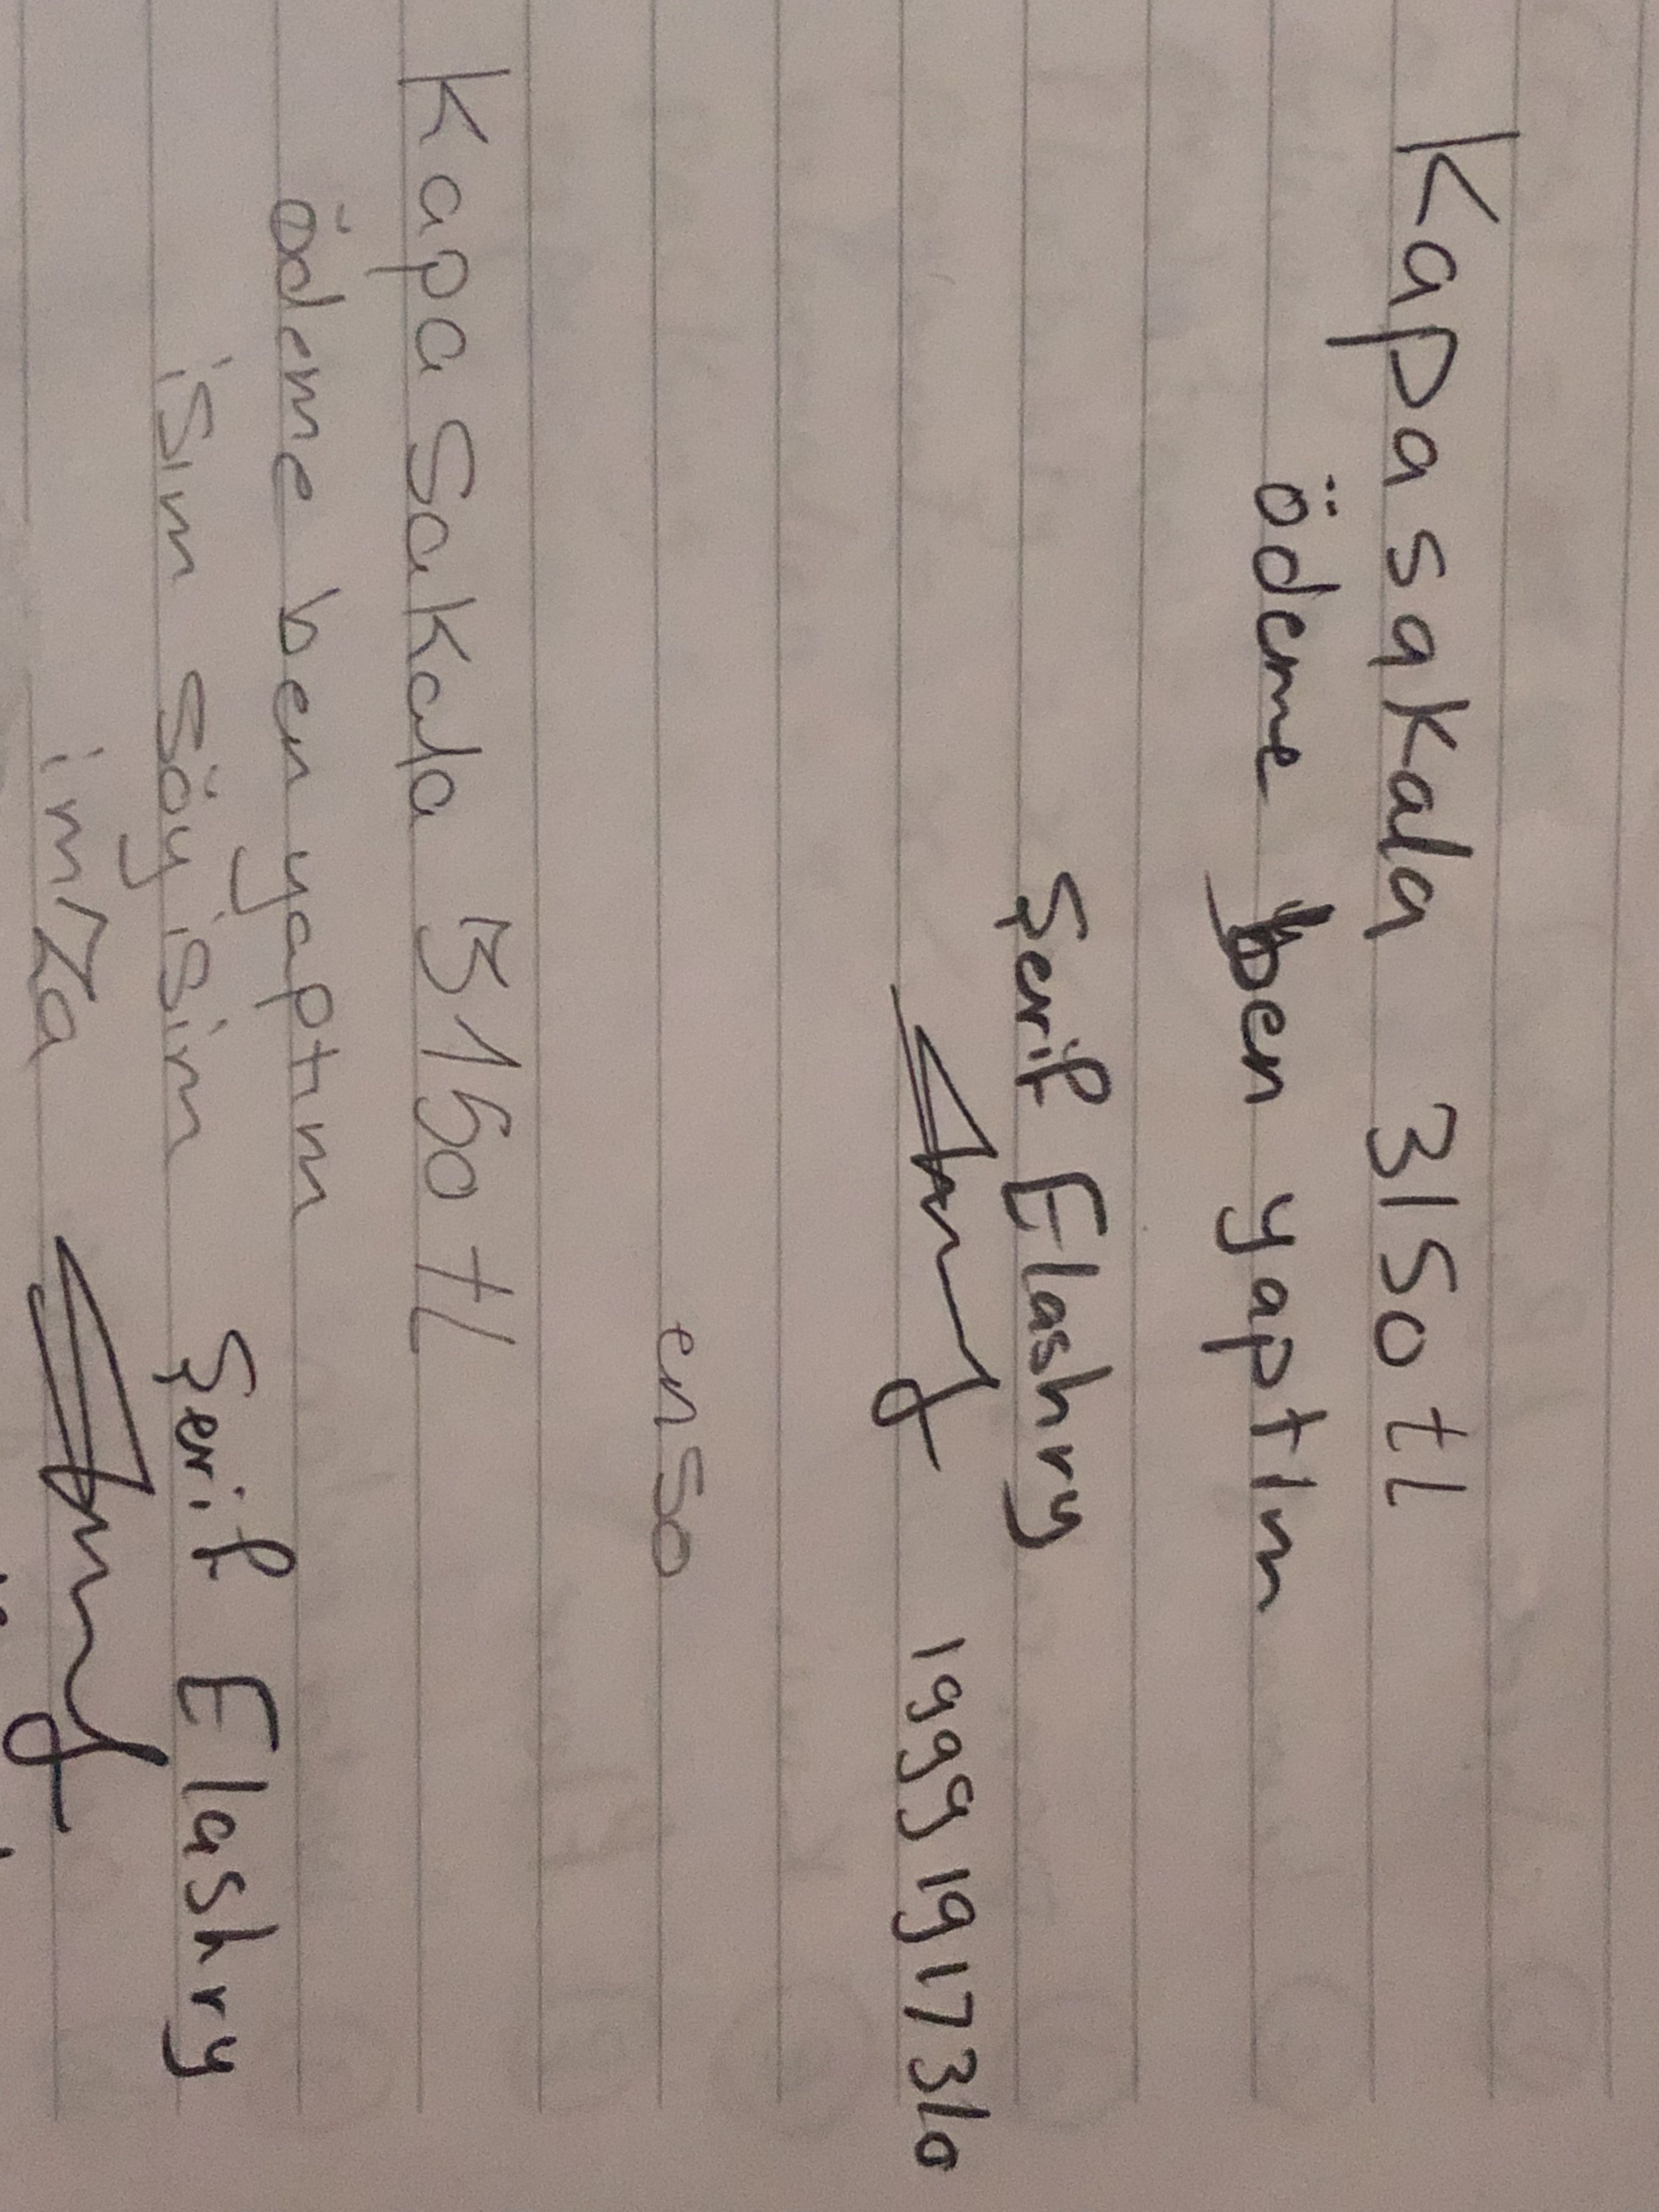 Kapasakala 3150tl
ödeme ben yaptım
Şerif Elashry
enso
KapaSakala 3150tl
ödeme ben yaptım
isim Söyisim Şerif Elashry
imza